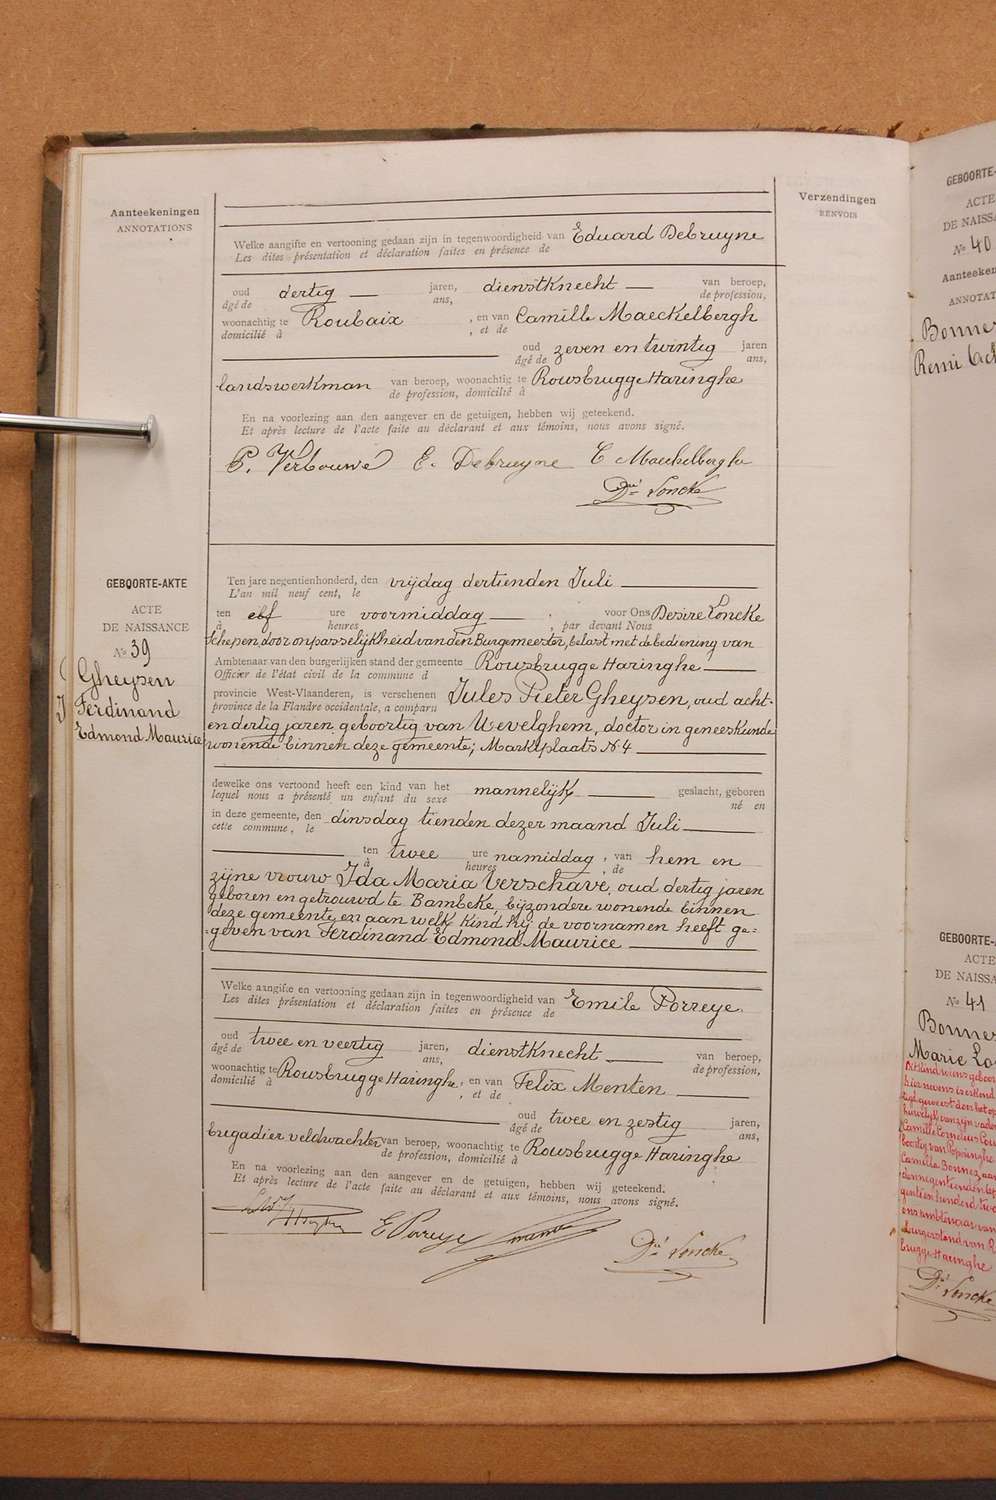 Aanteekeningen
ANNOTATIONS
Verzendingen
RENVOIS
Welke aangifte en vertooning gedaan zijn in tegenwoordigheid van Eduard Debruyne
Les dites présentation et déclaration faites en présence de
oud dertig — jaren, dienstknecht — van beroep,
âgé de ans, de profession,
woonachtig te Roubaix , en van Camille Maeckelbergh
domicilié à , et de
oud zeven en twintig jaren
âgé de ans,
landswerkman van beroep, woonachtig te Rousbrugge Haringhe
de profession, domicilié à
En na voorlezing aan den aangever en de getuigen, hebben wij geteekend.
Et après lecture de l'acte faite au déclarant et aux témoins, nous avons signé.
P. Verbouwé E. Debruyne C Maeckelberghe
Dré Loncke
GEBOORTE-AKTE
ACTE
DE NAISSANCE
No 39
Gheysen
Ferdinand
Edmond Maurice
Ten jare negentienhonderd, den vrijdag dertienden Juli
L'an mil neuf cent, le
ten elf ure voormiddag — , voor Ons Desiré Loncke
à heures , par devant Nous
Schepen, door onpasselijkheid van den Burgemeester, belast met de bediening van
Ambtenaar van den burgerlijken stand der gemeente Rousbrugge Haringhe
Officier de l'état civil de la commune d
provincie West-Vlaanderen, is verschenen Jules Pieter Gheysen, oud acht-
province de la Flandre occidentale, a comparu
en dertig jaren, geboortig van Wevelghem, doctor in geneeskunde
wonende binnen deze gemeente; Marktplaats N 4
dewelke ons vertoond heeft een kind van het mannelijk — geslacht, geboren
lequel nous a présenté un enfant du sexe né en
in deze gemeente, den dinsdag tienden dezer maand Juli
cette commune, le
ten twee ure namiddag , van hem en
à heures , de
zijne vrouw Ida Maria Verschave, oud dertig jaren
geboren en getrouwd te Bambeke, bijzondere wonende binnen
deze gemeente, en aan welk kind hij de voornamen heeft ge=
=geven van Ferdinand Edmond Maurice
Welke aangifte en vertooning gedaan zijn in tegenwoordigheid van Emile Porreye,
Les dites présentation et déclaration faites en présence de
oud twee en veertig jaren, dienstknecht — van beroep,
âgé de ans, de profession,
woonachtig te Rousbrugge Haringhe, en van Felix Menten
domicilié à , et de
oud twee en zestig jaren,
âgé de ans,
brigadier veldwachter van beroep, woonachtig te Rousbrugge Haringhe
de profession, domicilié à
En na voorlezing aan den aangever en de getuigen, hebben wij geteekend.
Et après lecture de l'acte faite au déclarant et aux témoins, nous avons signé.
E Porreye Dré Loncke
GEBOORTE-
ACTE
DE NAISSA
No 40
Aanteeken
ANNOTAT
Bonne
Remi
GEBOORTE-
ACTE
DE NAISSA
No 41
Bonne
Marie Lo
Brugge Haringhe
Dré Loncke